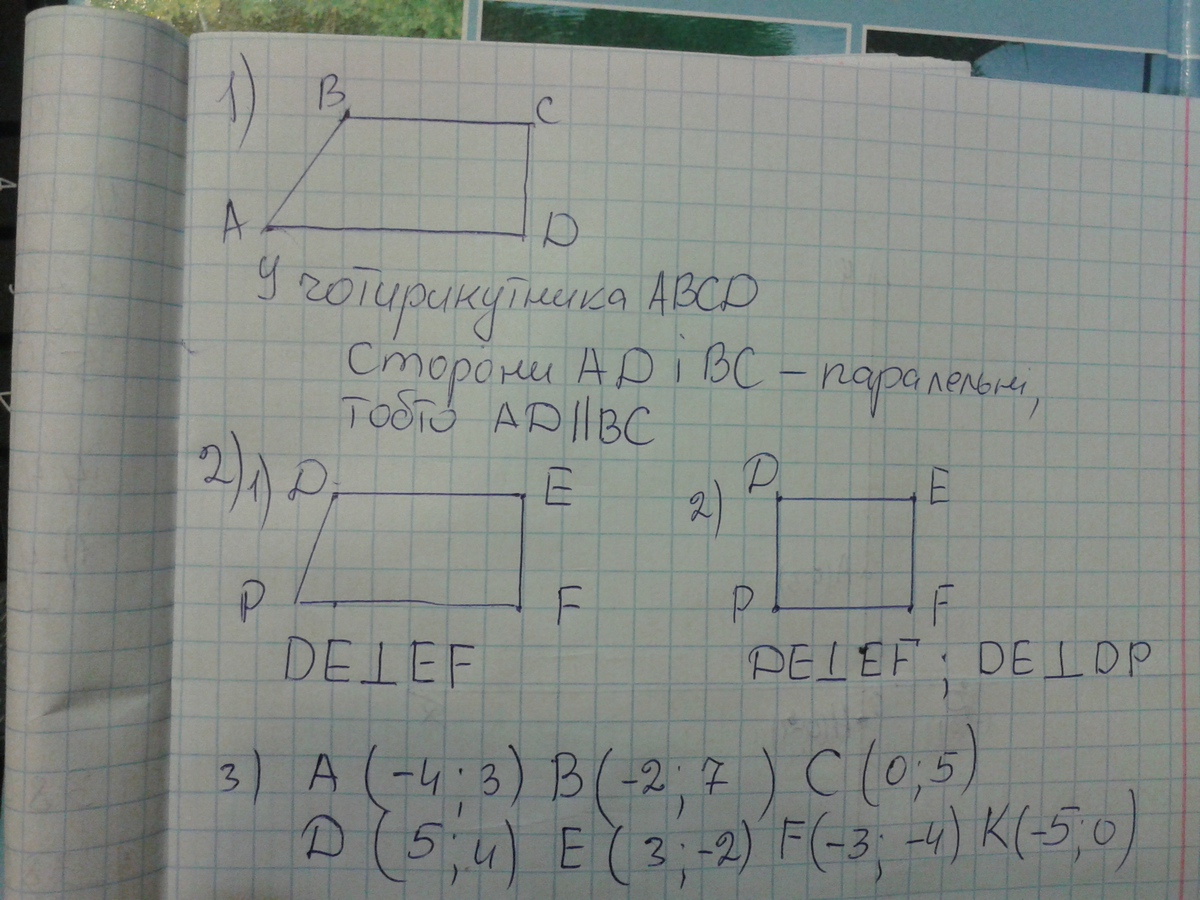 1)
B C
A D
У чотирикутника ABCD
Сторони AD і BC – паралельні,
тобто AD||BC
2) 1) D E 2) D E
P F P F
DE⊥EF DE⊥EF ; DE⊥DP
3) A (-4; 3) B (-2; 7) C (0; 5)
D (5; 4) E (3; -2) F (-3; -4) K (-5; 0)